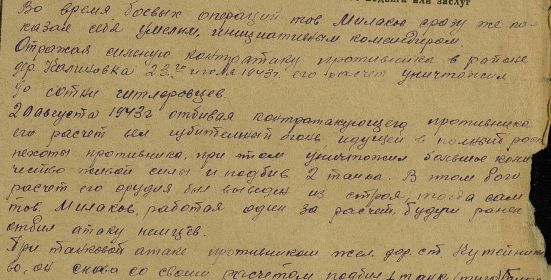 подвига или заслуг
Во время боевых операций тов Милаков сразу же по-
казал себя умелым, инициативным командиром.
Отражая сильную контратаку противника в районе
дер Калиновка 23го июля 1943г. его расчет уничтожил
до сотни гитлеровцев.
20 августа 1943г отбивая контратакующего противника
его расчет вел убийственный огонь идущей в полный рост
пехоты противника, при этом уничтожил большое коли
чество живой силы и подбив 2 танка. В этом бою
расчет его орудия был выведен из строя, тогда сам
тов. Милаков, работая один за расчет, будучи ранен
отбил атаку немцев.
При танковой атаке противником жел. дор. ст. Кутейнико
во, он снова со своим расчетом подбил 1 танк